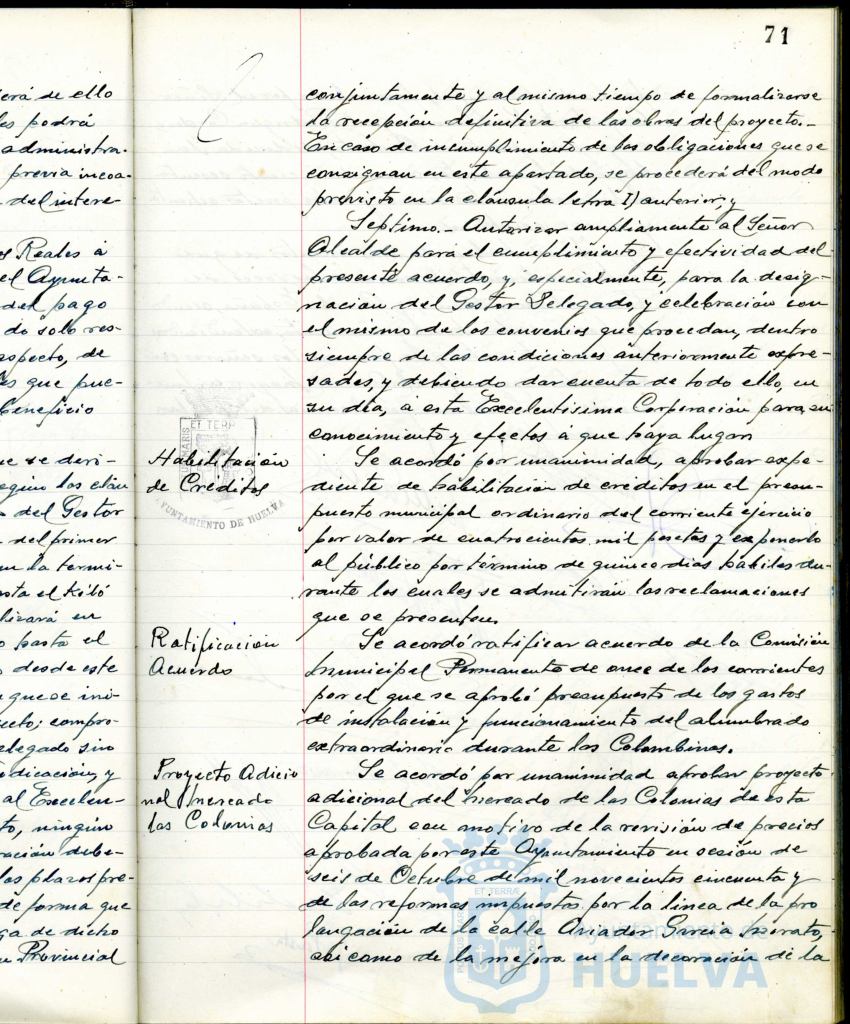 71
erá de ello
es podrá
administra-
previa incoa-
del intere-
s Reales á
el Ayunta-
del pago
do solo res-
specto, de
es que pue-
beneficio
ue se deri-
egún las cláu
del Gestor
del primer
en la termi-
sta el Kiló
lizará en
o hasta el
desde este
que se ini-
ecto; compro-
elegado sin
dicación y
al Excelen-
to, ningún
ración debe-
los plazos pre-
de forma que
ga de dicho
n Provincial
conjuntamente y al mismo tiempo de formalizarse
la recepción definitiva de las obras del proyecto.-
En caso de incumplimiento de las obligaciones que se
consignan en este apartado, se procederá del modo
previsto en la cláusula letra I) anterior; y
Septimo.- Autorizar ampliamente al Señor
Alcalde para el cumplimiento y efectividad del
presente acuerdo, y, especialmente, para la desig-
nación del Gestor Delegado, y celebración con
el mismo de los convenios que procedan, dentro
siempre de las condiciones anteriormente expre-
sadas, y debiendo dar cuenta de todo ello, en
su día, á esta Excelentísima Corporación para su
conocimiento y efectos á que haya lugar.
Habilitación
de Créditos
Se acordó por unanimidad, aprobar expe-
diente de habilitación de créditos en el presu-
puesto municipal ordinario del corriente ejercicio
por valor de cuatrocientas mil pesetas y exponerlo
al público por término de quince dias hábiles du-
rante los cuales se admitirán las reclamaciones
que se presenten.
Ratificación
Acuerdo
Se acordó ratificar acuerdo de la Comisión
Municipal Permanente de once de los corrientes
por el que se aprobó presupuesto de los gastos
de instalación y funcionamiento del alumbrado
extraordinario durante las Colombinas.
Proyecto Adicio
nal Mercado
las Colonias
Se acordó por unanimidad aprobar proyecto
adicional del Mercado de las Colonias de esta
Capital con motivo de la revisión de precios
aprobada por este Ayuntamiento en sesión de
seis de Octubre de mil novecientos cincuenta y
de las reformas impuestas por la linea de la pro
longación de la calle Aviador García Morato,
asi como de la mejora en la decoración de la
ET TERR
MARIS
AYUNTAMIENTO DE HUELVA
ET TERRÆ
PORTUS MARIS
CUSTODIO
Ayuntamiento de
HUELVA